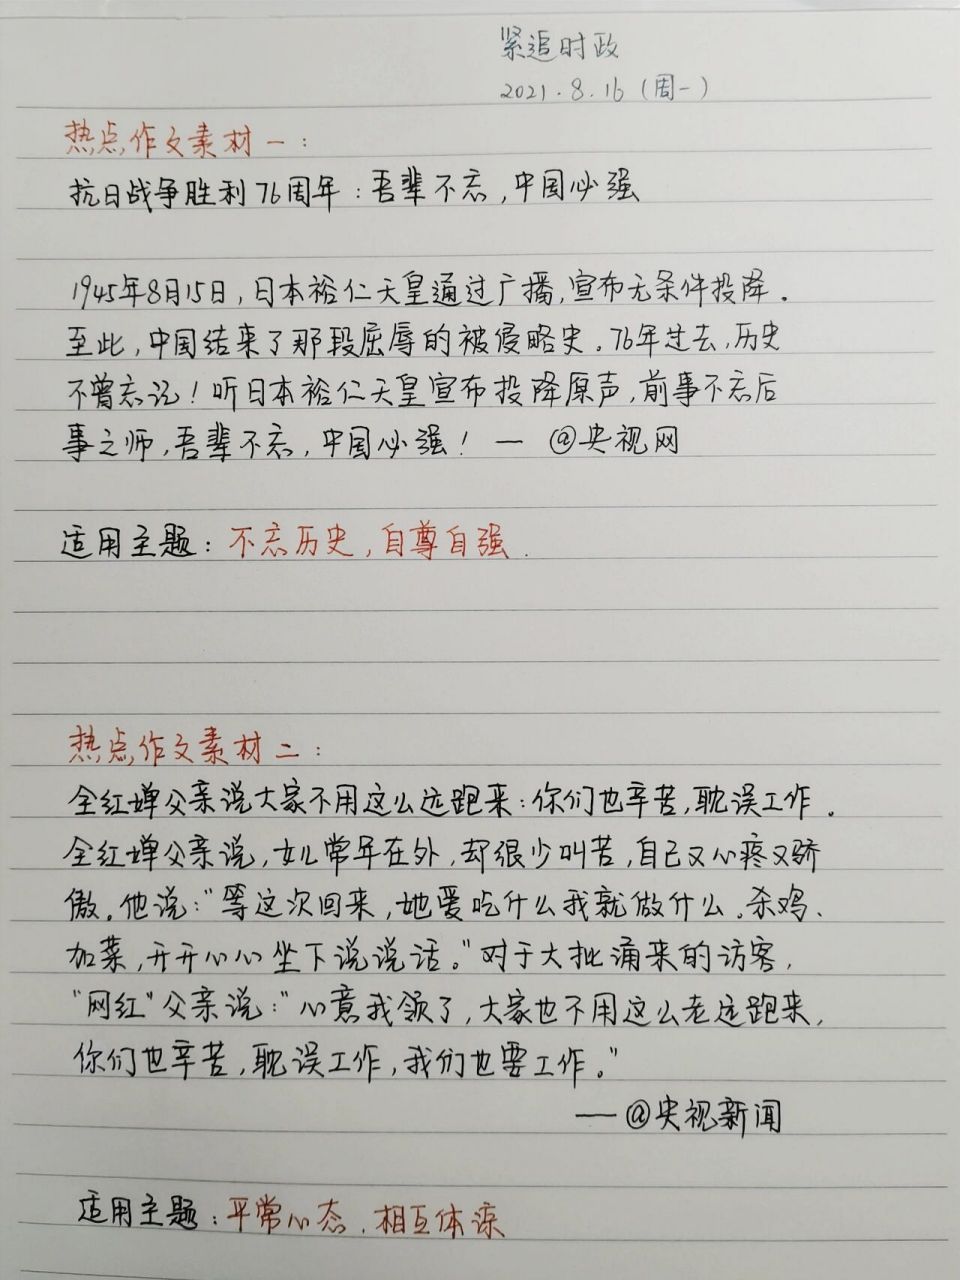 紧追时政
2021.8.16(周一)
热点作文素材一:
抗日战争胜利76周年:吾辈不忘,中国必强
1945年8月15日,日本裕仁天皇通过广播,宣布无条件投降.
至此,中国结束了那段屈辱的被侵略史。76年过去,历史
不曾忘记!听日本裕仁天皇宣布投降原声,前事不忘后
事之师,吾辈不忘,中国必强!—@央视网
适用主题:不忘历史,自尊自强.
热点作文素材二:
全红婵父亲说大家不用这么远跑来:你们也辛苦,耽误工作.
全红婵父亲说,女儿常年在外,却很少叫苦,自己又心疼又骄
傲。他说:“等这次回来,她爱吃什么我就做什么。杀鸡、
加菜,开开心心坐下说说话。”对于大批涌来的访客,
“网红”父亲说:“心意我领了,大家也不用这么老远跑来,
你们也辛苦,耽误工作,我们也要工作。”
——@央视新闻
适用主题:平常心态.相互体谅